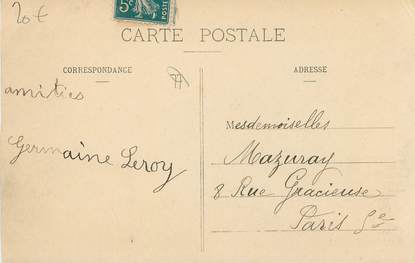 20t
5c
CARTE POSTALE
CORRESPONDANCE
amitiés
Germaine Leroy
ADRESSE
Mesdemoiselles
Mazuray
8 Rue Gracieuse
Paris 5e